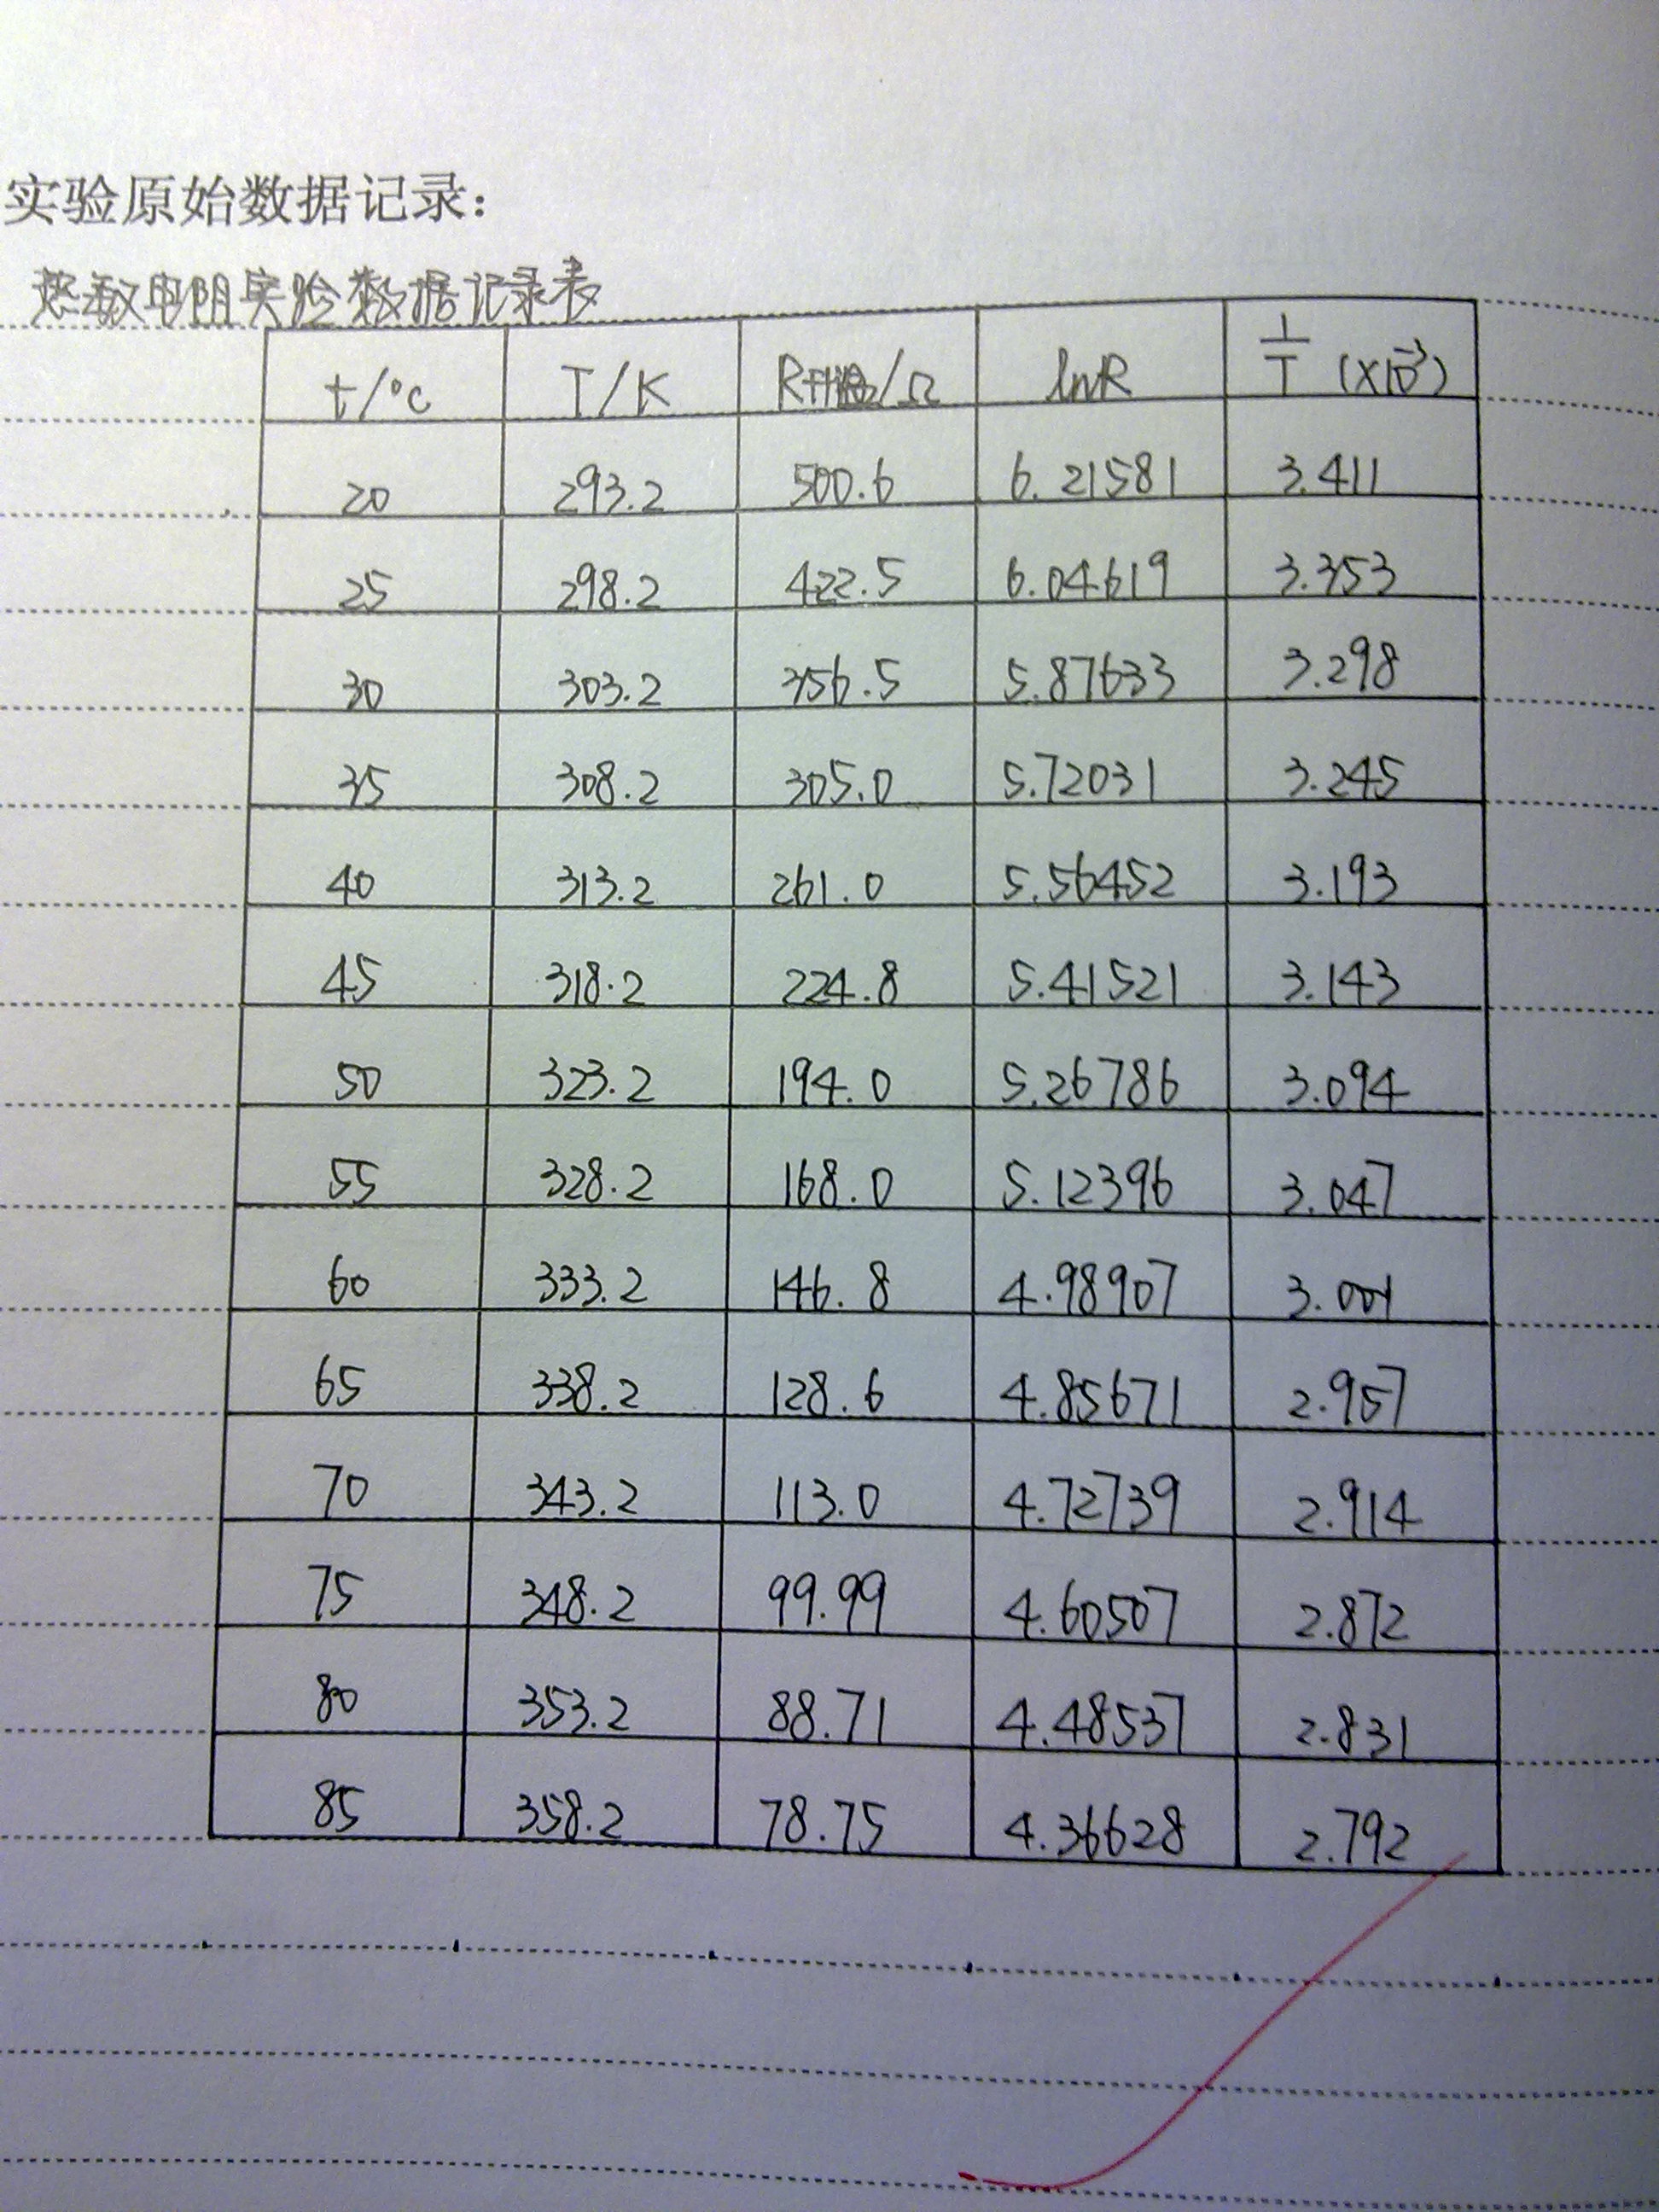 实验原始数据记录:
热敏电阻实验数据记录表
t/°C T/K R升温/Ω lnR 1/T (×10⁻³)
20 293.2 500.6 6.21581 3.411
25 298.2 422.5 6.04619 3.353
30 303.2 356.5 5.87633 3.298
35 308.2 305.0 5.72031 3.245
40 313.2 261.0 5.56452 3.193
45 318.2 224.8 5.41521 3.143
50 323.2 194.0 5.26786 3.094
55 328.2 168.0 5.12396 3.047
60 333.2 146.8 4.98907 3.001
65 338.2 128.6 4.85671 2.957
70 343.2 113.0 4.72739 2.914
75 348.2 99.99 4.60507 2.872
80 353.2 88.71 4.48537 2.831
85 358.2 78.75 4.36628 2.792